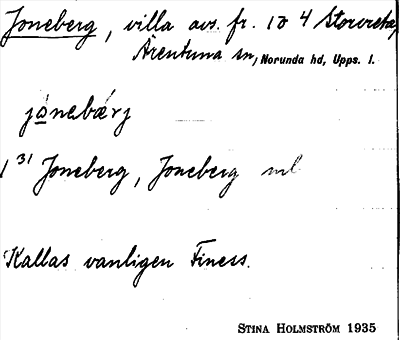 Joneberg, villa avs. fr. 1a 4 Storvreta,
Ärentuna sn, Norunda hd, Upps. l.
jónebǽrj
1 31 Joneberg, Joneberg ml
Kallas vanligen Finess.
STINA HOLMSTRÖM 1935